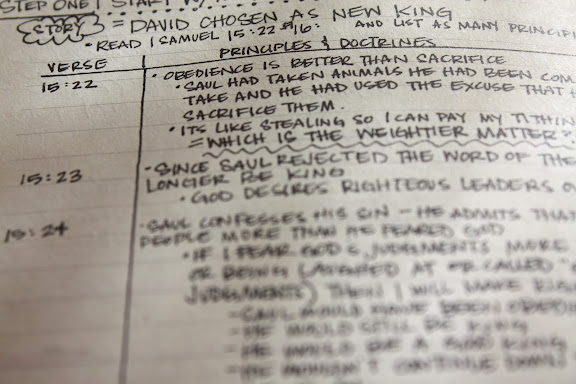 STEP ONE | START
STORY = DAVID CHOSEN AS NEW KING
• READ 1 SAMUEL 15:22 & 16: AND LIST AS MANY PRINCIPL
VERSE PRINCIPLES & DOCTRINES
15:22 • OBEDIENCE IS BETTER THAN SACRIFICE
• SAUL HAD TAKEN ANIMALS HE HAD BEEN COM
TAKE AND HE HAD USED THE EXCUSE THAT H
SACRIFICE THEM.
• ITS LIKE STEALING SO I CAN PAY MY TITHIN
= WHICH IS THE WEIGHTIER MATTER?
15:23 • SINCE SAUL REJECTED THE WORD OF THE
LONGER BE KING
• GOD DESIRES RIGHTEOUS LEADERS O
15:24 • SAUL CONFESSES HIS SIN - HE ADMITS THAT
PEOPLE MORE THAN HE FEARED GOD
• IF I FEAR GOD'S JUDGMENTS MORE
OR BEING LAUGHED AT OR CALLED "
JUDGMENTS) THEN I WILL MAKE RIGH
- SAUL WOULD HAVE BEEN OBEDI
- HE WOULD STILL BE KING
- HE WOULD BE A GOOD KING
- HE WOULDN'T CONTINUE DOWN